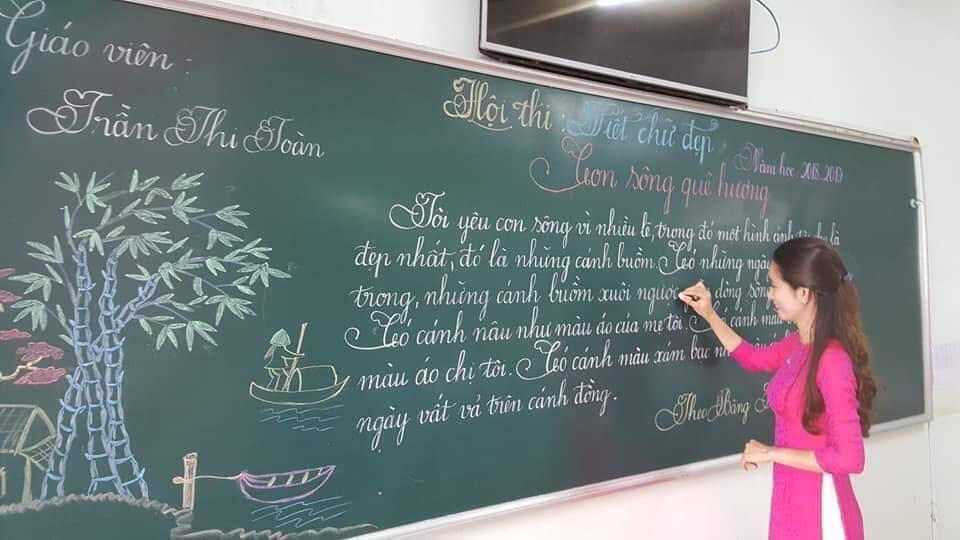 Giáo viên :
Trần Thi Toàn
Hội thi : Viết chữ đẹp
Năm học 2018_2019
Con sông quê hương
Tôi yêu con sông vì nhiều lẽ, trong đó một hình ảnh là
đẹp nhất, đó là những cánh buồm. Có những ngày
trong, những cánh buồm xuôi ngược dòng sông
Có cánh nâu như màu áo của mẹ tôi. Có cánh màu
màu áo chị tôi. Có cánh màu xám bạc
ngày vất vả trên cánh đồng.
Theo Băng